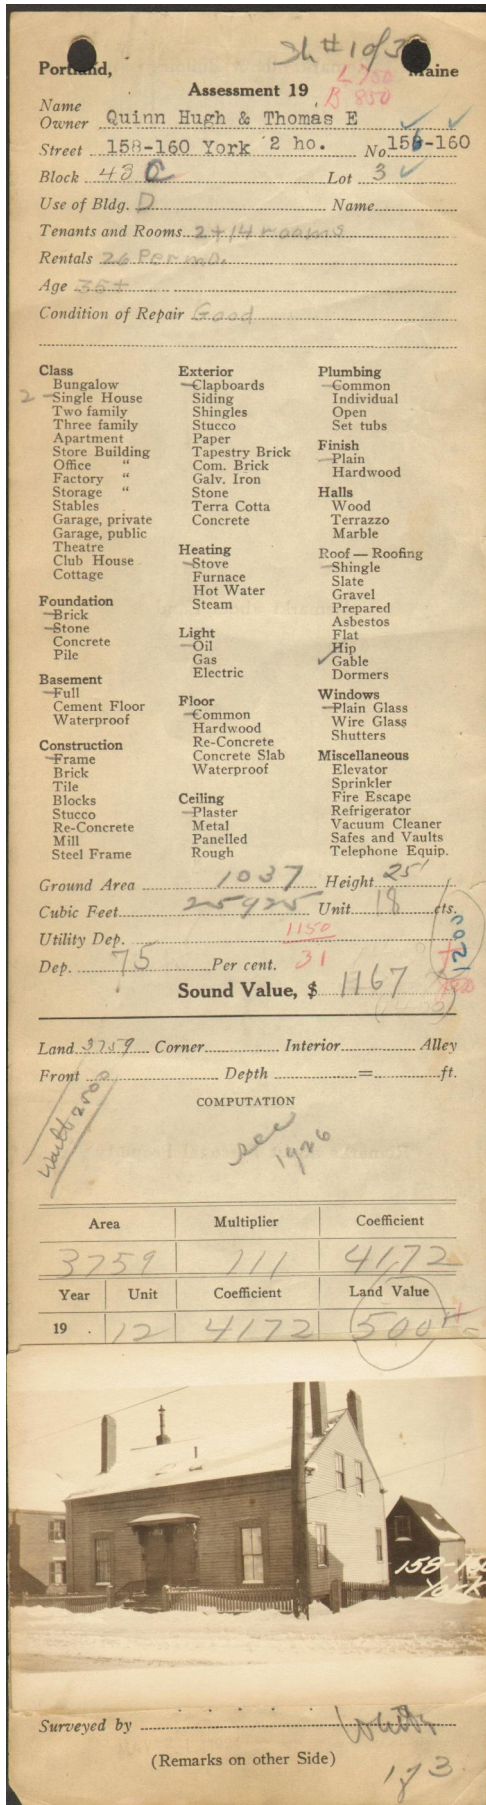 Sh # 1 of 3
Portland, Maine
L 750
Assessment 19
B 850
Name
Owner Quinn Hugh & Thomas E
Street 158-160 York 2 ho. No 158-160
Block 43 C Lot 3
Use of Bldg. D Name
Tenants and Rooms 2+14 rooms
Rentals 26 Per mo.
Age 35+
Condition of Repair Good
Class
Bungalow
2 Single House
Two family
Three family
Apartment
Store Building
Office "
Factory "
Storage "
Stables
Garage, private
Garage, public
Theatre
Club House
Cottage
Foundation
Brick
Stone
Concrete
Pile
Basement
Full
Cement Floor
Waterproof
Construction
Frame
Brick
Tile
Blocks
Stucco
Re-Concrete
Mill
Steel Frame
Exterior
Clapboards
Siding
Shingles
Stucco
Paper
Tapestry Brick
Com. Brick
Galv. Iron
Stone
Terra Cotta
Concrete
Heating
Stove
Furnace
Hot Water
Steam
Light
Oil
Gas
Electric
Floor
Common
Hardwood
Re-Concrete
Concrete Slab
Waterproof
Ceiling
Plaster
Metal
Panelled
Rough
Plumbing
Common
Individual
Open
Set tubs
Finish
Plain
Hardwood
Halls
Wood
Terrazzo
Marble
Roof — Roofing
Shingle
Slate
Gravel
Prepared
Asbestos
Flat
Hip
Gable
Dormers
Windows
Plain Glass
Wire Glass
Shutters
Miscellaneous
Elevator
Sprinkler
Fire Escape
Refrigerator
Vacuum Cleaner
Safes and Vaults
Telephone Equip.
Ground Area 1037 Height 25'
Cubic Feet 25925 Unit 18 cts.
Utility Dep. 1150
1200
Dep. 75 Per cent. 31
Sound Value, $ 1167
Land 3759 Corner Interior Alley
Front Depth = ft.
COMPUTATION
see
1926
Area Multiplier Coefficient
3759 111 4172
Year Unit Coefficient Land Value
19 . 12 4172 500
158-160
York
Surveyed by
(Remarks on other Side)
1 of 3